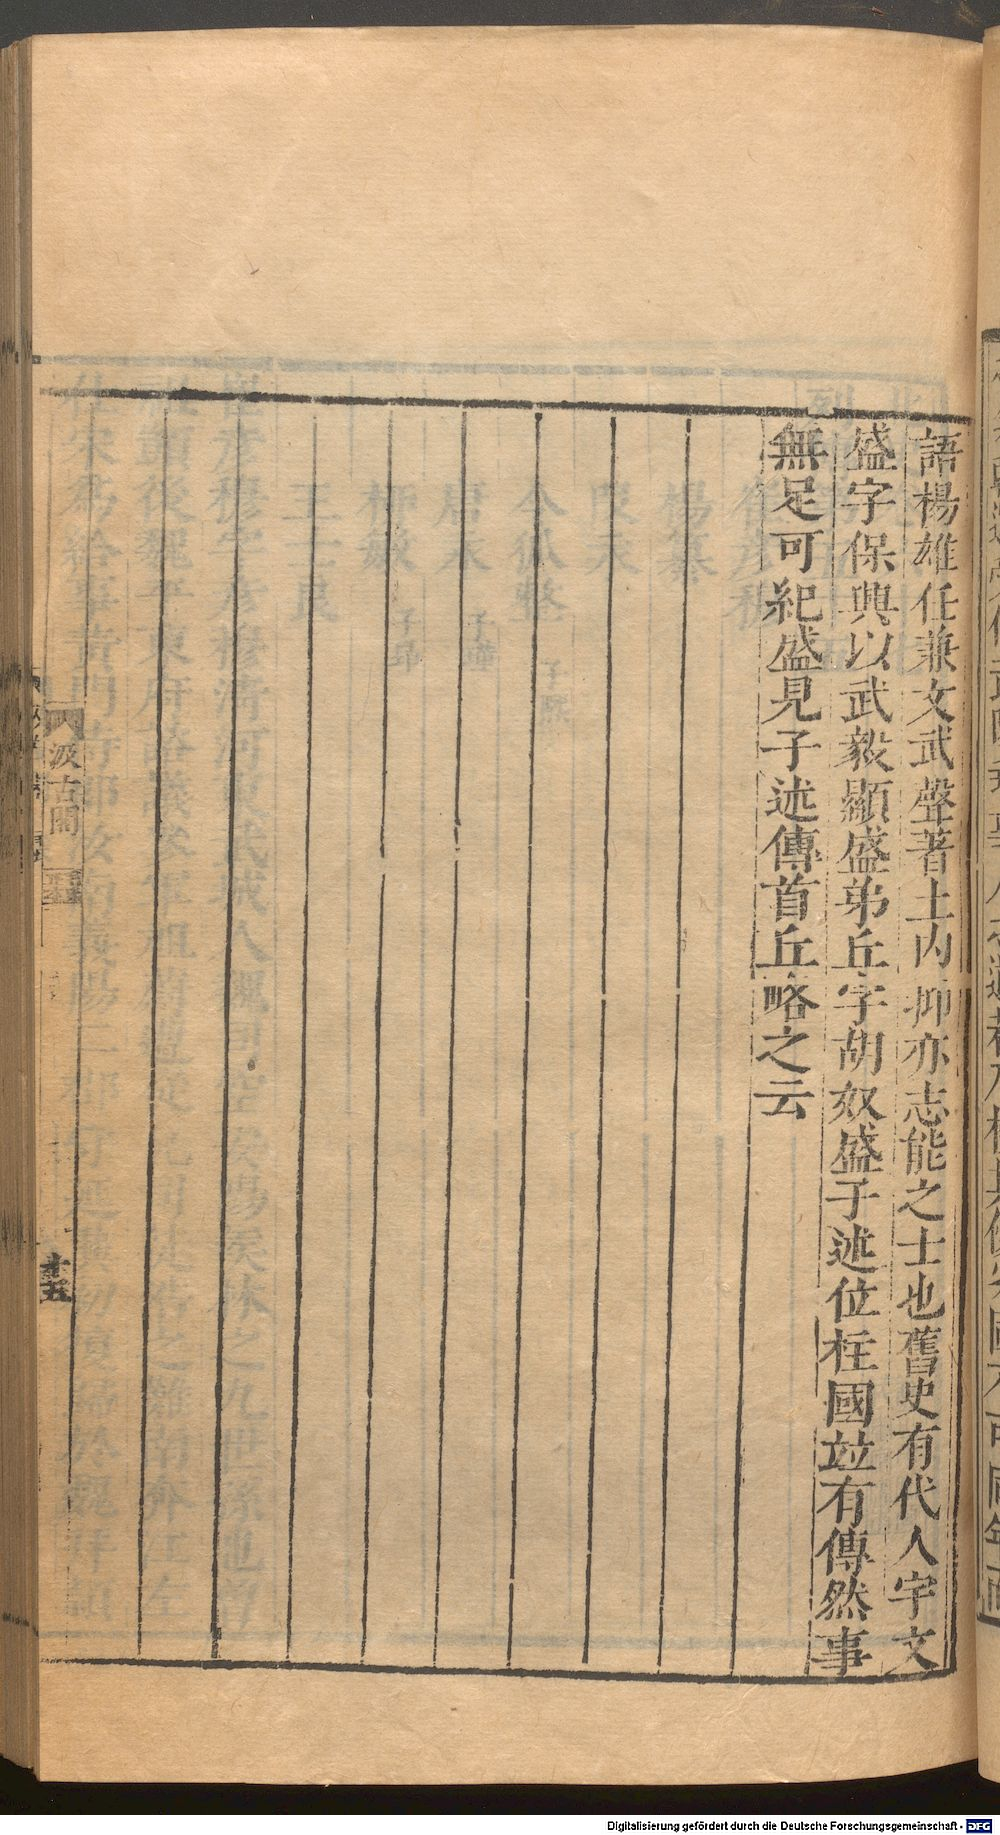 語楊雄任兼文武聲著土内抑亦志能之士也舊史有代人宇文
盛字保興以武毅顯盛弟丘字胡奴盛子述位柱國竝有傳然事
無足可紀盛見子述傳首丘略之云
汲古閣
十五
Digitalisierung gefördert durch die Deutsche Forschungsgemeinschaft - DFG